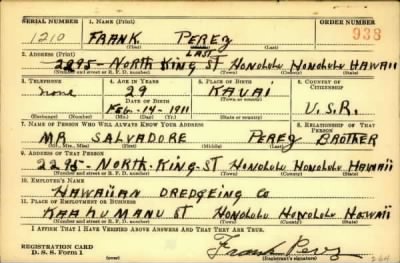 SERIAL NUMBER 1. NAME (Print) ORDER NUMBER
1210 FRANK PEREZ 938
(First) (Middle) LAST (Last)
2. ADDRESS (Print)
2295-NORTH KING ST HONOLULU HONOLULU HAWAII
(Number and street or R. F. D. number) (Town) (County) (State)
3. TELEPHONE 4. AGE IN YEARS 5. PLACE OF BIRTH 6. COUNTRY OF CITIZENSHIP
none 29 KAUAI
DATE OF BIRTH (Town or county)
Feb-14-1911 U.S.A.
(Exchange) (Number) (Mo.) (Day) (Yr.) (State or country)
7. NAME OF PERSON WHO WILL ALWAYS KNOW YOUR ADDRESS 8. RELATIONSHIP OF THAT PERSON
MR SALVADORE PEREZ BROTHER
(Mr., Mrs., Miss) (First) (Middle) (Last)
9. ADDRESS OF THAT PERSON
2295-NORTH-KING-ST HONOLULU HONOLULU HAWAII
(Number and street or R. F. D. number) (Town) (County) (State)
10. EMPLOYER'S NAME
HAWAIIAN DREDGEING CO
11. PLACE OF EMPLOYMENT OR BUSINESS
KAAHUMANU ST HONOLULU HONOLULU HAWAII
(Number and street or R. F. D. number) (Town) (County) (State)
I AFFIRM THAT I HAVE VERIFIED ABOVE ANSWERS AND THAT THEY ARE TRUE.
REGISTRATION CARD
D. S. S. Form 1 Frank Perez
(Registrant's signature)